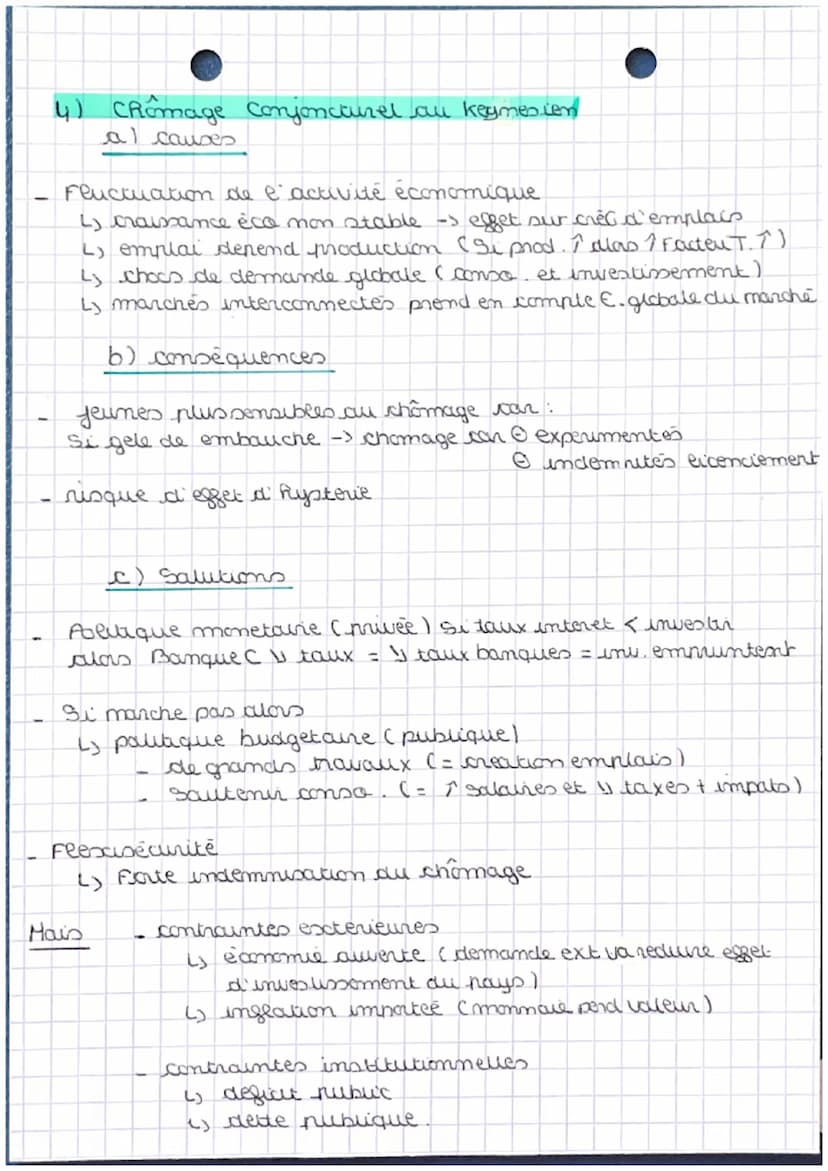 4) Chômage conjoncturel ou keynesien
a) causes
- Fluctuation de l'activité économique
↳ croissance éco non stable -> effet sur créa° d'emplois
↳ emploi depend production (Si prod. ↑ alors ↑ Facteu T. ↑)
↳ chocs de demande globale (conso. et investissement)
↳ marchés interconnectés prend en compte E. globale du marché
b) conséquences
- jeunes plus sensibles au chômage car :
Si gele de embauche -> chomage car ⊖ experimentés
⊖ indemnités licenciement
- risque d'effet d'hysterie
c) Solutions
- Politique monetaire (privée) Si taux interet < investir
alors Banque C ↘ taux = ↘ taux banques = inv. empruntent
- Si marche pas alors
↳ politique budgetaire (publique)
- de grands travaux (= creation emplois)
- Soutenir conso. (= ↑ salaires et ↘ taxes + impots)
- Flexisécurité
↳ Forte indemnisation du chômage
Mais - contraintes exterieures
↳ économie ouverte (demande ext va reduire effet
d'investissement du pays)
↳ inflation importeé (monnaie perd valeur)
- contraintes institutionnelles
↳ deficit public
↳ dette publique.